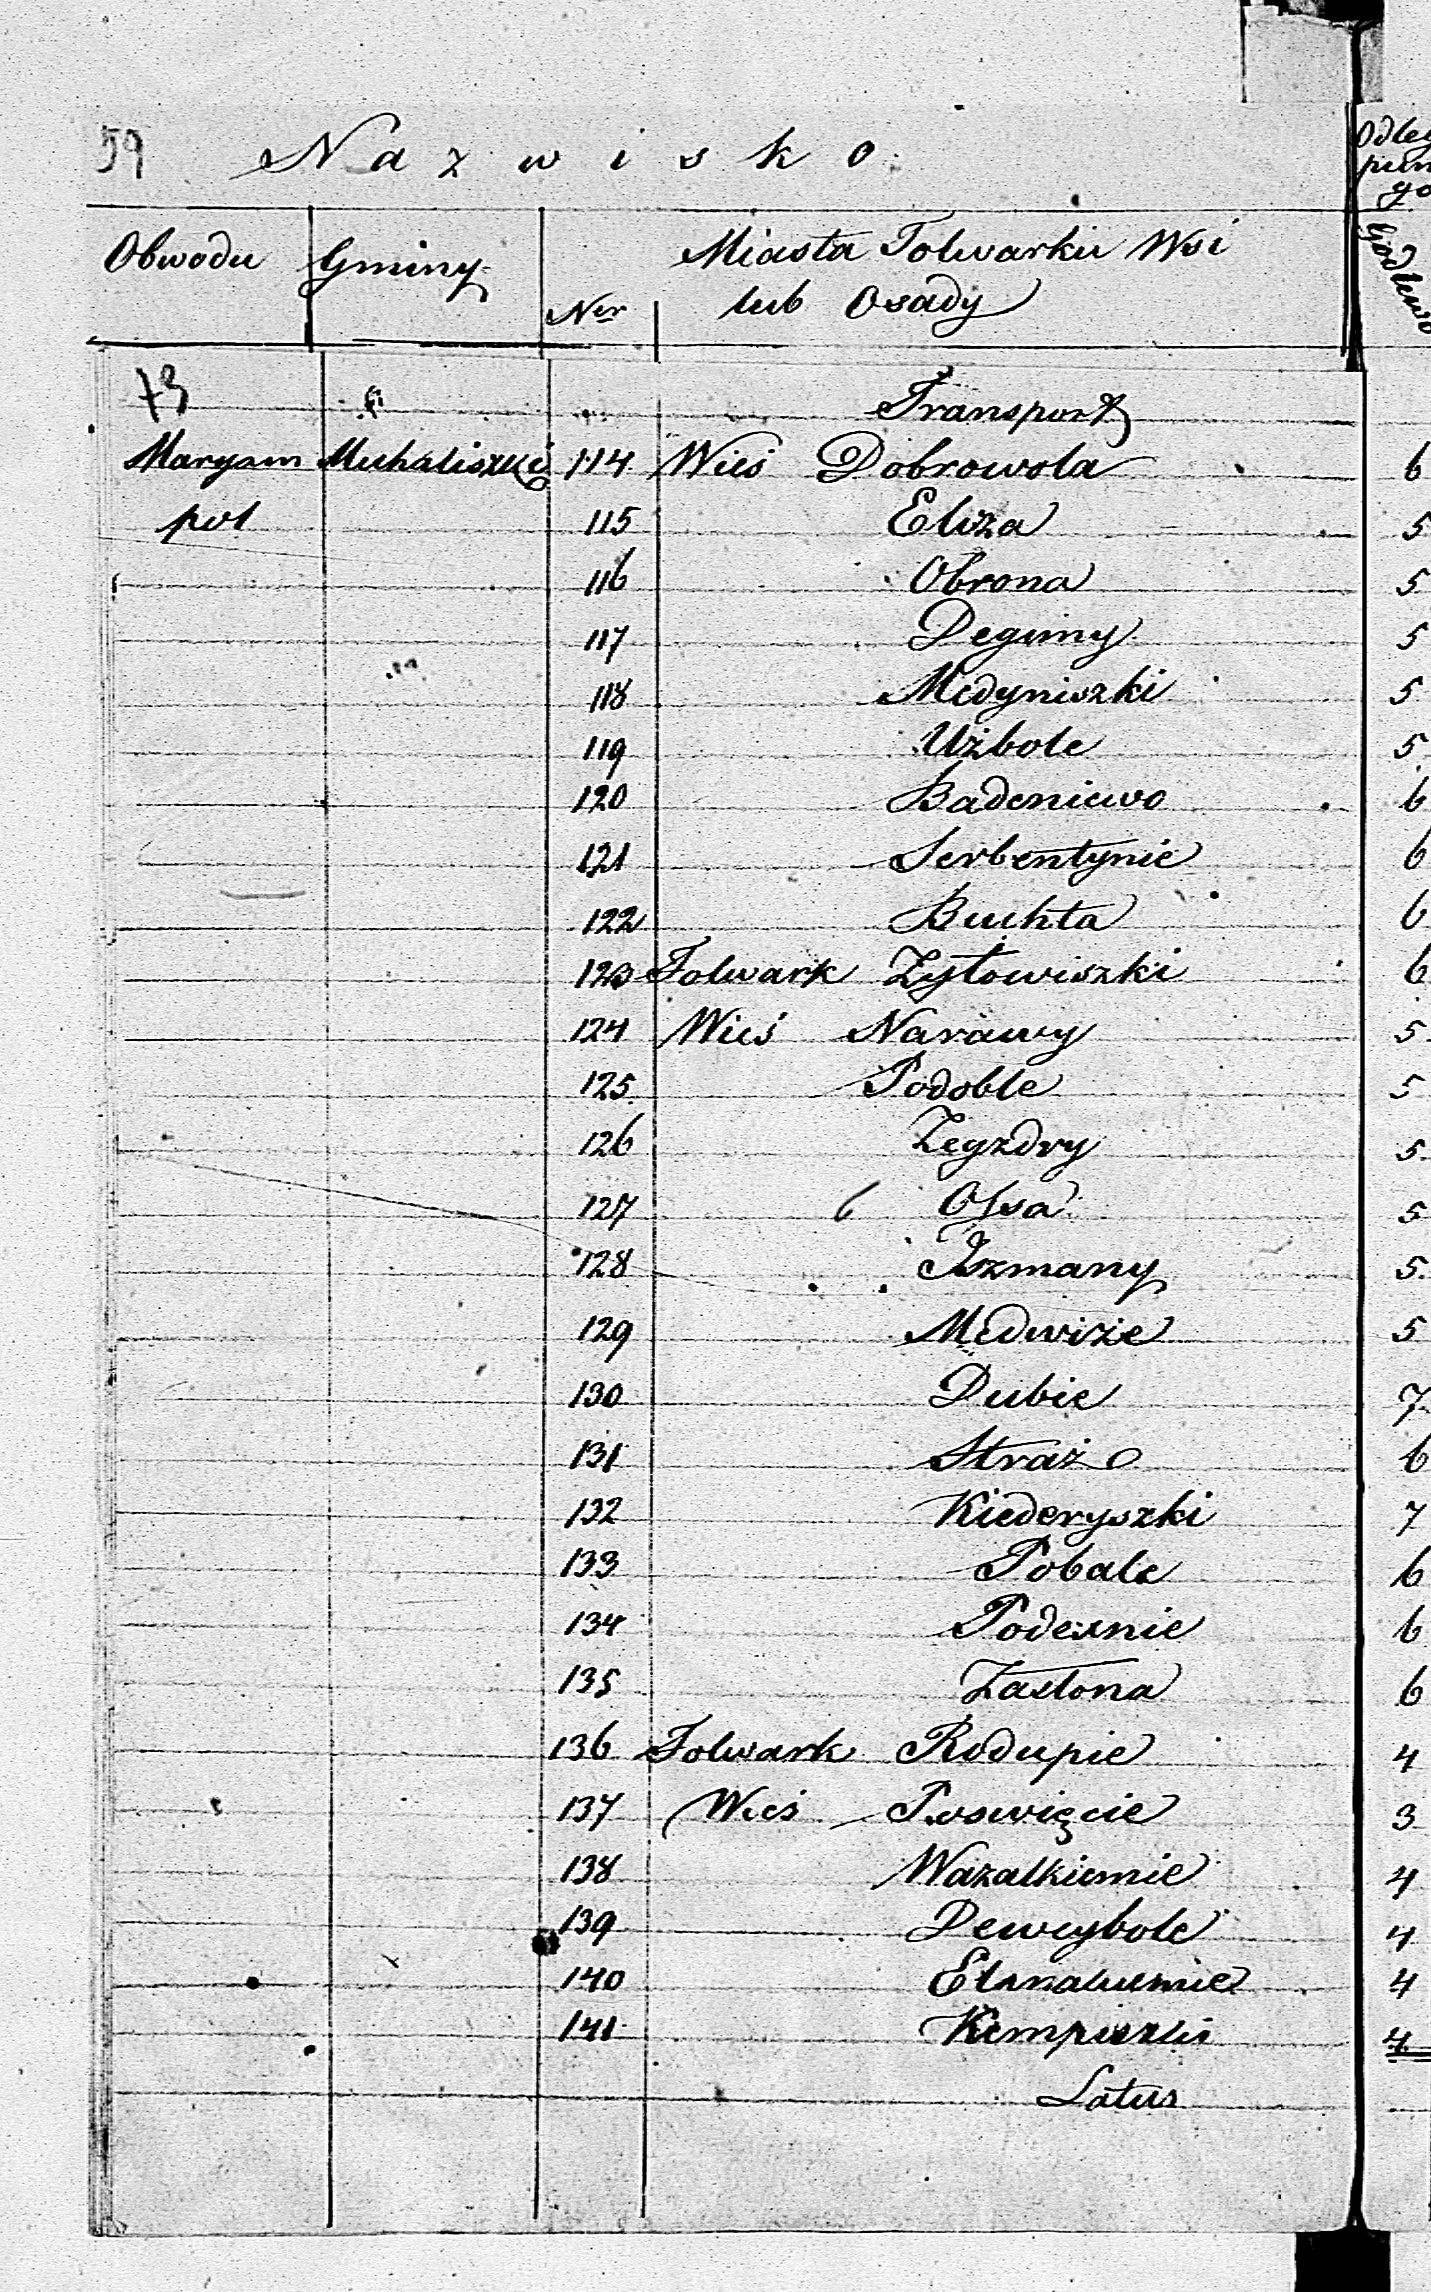 59 Nazwisko
Odleg
pun
go
Obwodu Gminy Ner Miasta Folwarku Wsi
lub Osady
Godlewo
73
Transport
Maryam Michaliszki 114 Wieś Dobrowola 6
pol 115 Eliza 5
116 Obrona 5
117 Degimy 5
118 Medyniszki 5
119 Użbole 5
120 Badeniewo 6
121 Serbentynie 6
122 Buchta 6
123 Folwark Zyłowiszki 6
124 Wieś Narawy 5
125 Podoble 5
126 Zegzdry 5
127 Olsa 5
128 Iszmany 5
129 Medwiże 5
130 Dubie 7
131 Straż 6
132 Kiederyszki 7
133 Pobale 6
134 Podexnie 6
135 Zasłona 6
136 Folwark Rodupie 4
137 Wieś Poswięcie 3
138 Wazalkiemie 4
139 Dewcybole 4
140 4
141 Kempiszki 4
Latus